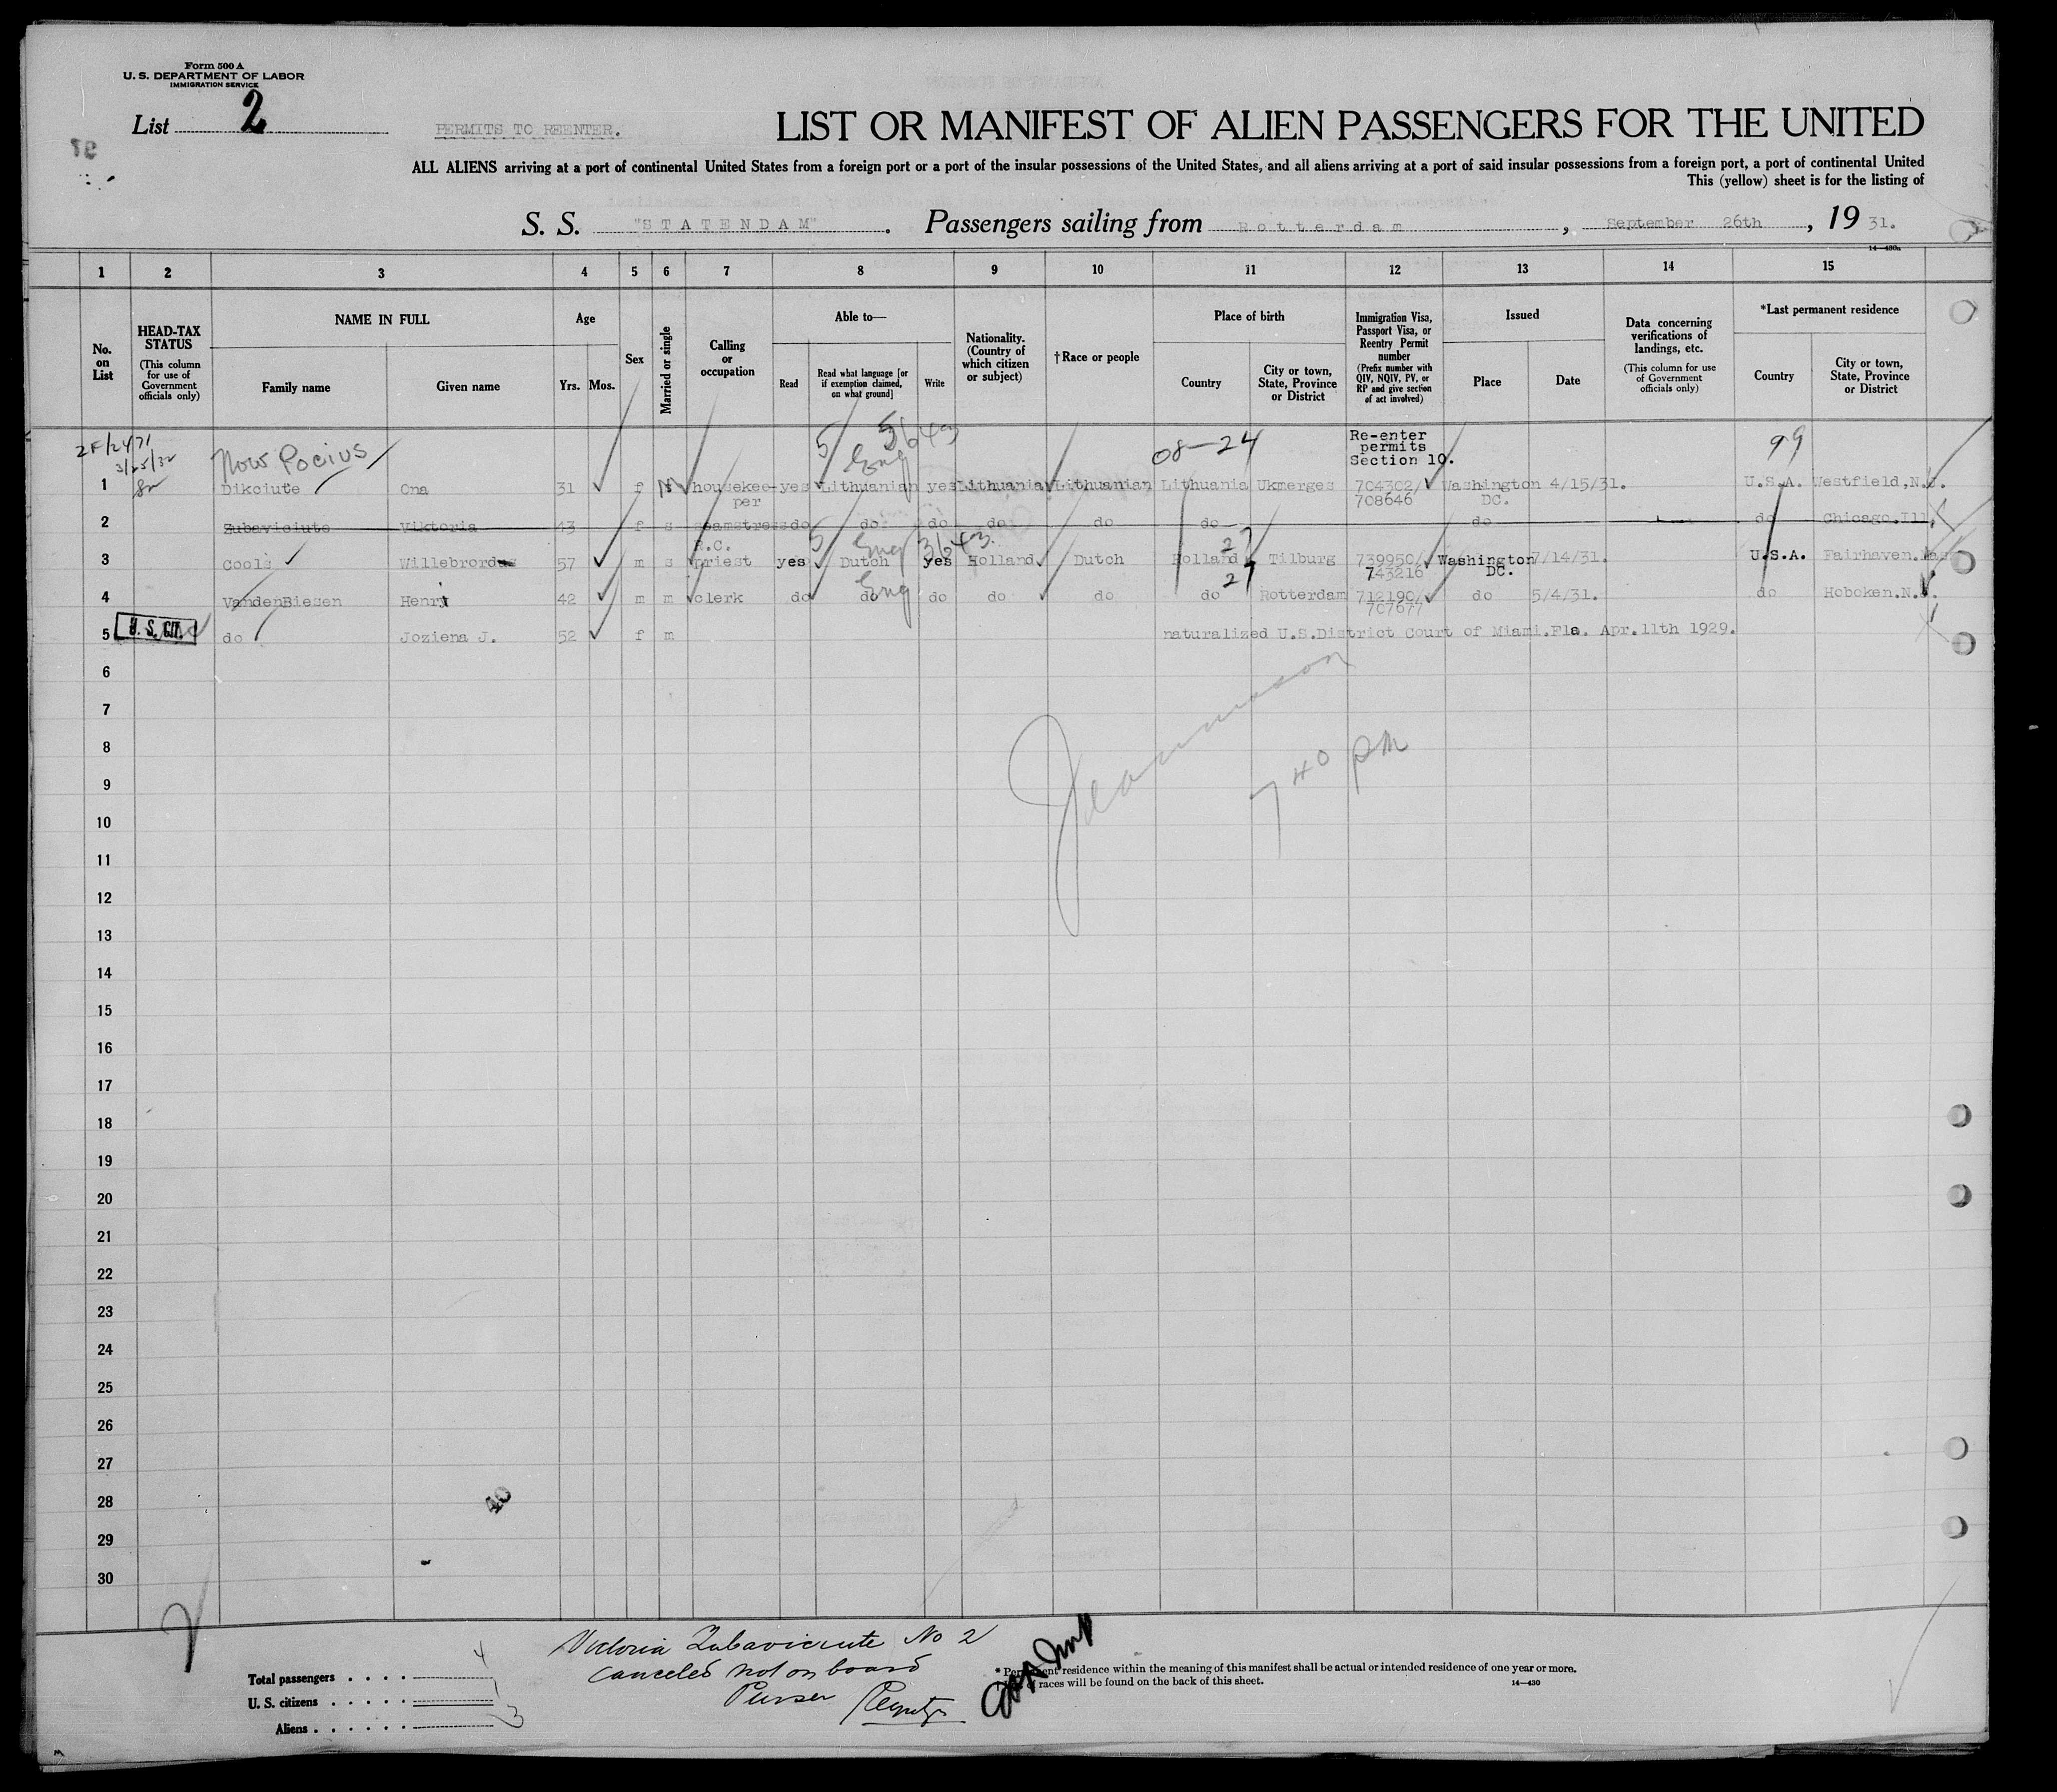 Form 500 A
U. S. DEPARTMENT OF LABOR
IMMIGRATION SERVICE
List 2
PERMITS TO REENTER.
LIST OR MANIFEST OF ALIEN PASSENGERS FOR THE UNITED
ALL ALIENS arriving at a port of continental United States from a foreign port or a port of the insular possessions of the United States, and all aliens arriving at a port of said insular possessions from a foreign port, a port of continental United
This (yellow) sheet is for the listing of
S. S. "STATENDAM". Passengers sailing from Rotterdam, September 26th, 19 31.
14—430a
1 2 3 4 5 6 7 8 9 10 11 12 13 14 15
No. on List
HEAD-TAX STATUS
(This column for use of Government officials only)
NAME IN FULL
Family name
Given name
Age
Yrs.
Mos.
Sex
Married or single
Calling or occupation
Able to—
Read
Read what language [or if exemption claimed, on what ground]
Write
Nationality. (Country of which citizen or subject)
†Race or people
Place of birth
Country
City or town, State, Province or District
Immigration Visa, Passport Visa, or Reentry Permit number
(Prefix number with QIV, NQIV, PV, or RP and give section of act involved)
Issued
Place
Date
Data concerning verifications of landings, etc.
(This column for use of Government officials only)
*Last permanent residence
Country
City or town, State, Province or District
3/25/32
Now Pocius
5 Eng 3643
08-24
Re-enter permits Section 10.
99
1 Dikciute Ona 31 f housekeeper yes Lithuanian yes Lithuania Lithuanian Lithuania Ukmerges 704302/708646 Washington DC. 4/15/31. U.S.A. Westfield,N.J.
2 Zubaviciute Viktoria 43 f s seamstress do do do do do do do do Chicago.Ill.
5 Eng 3643 27
3 Cools Willebrord 57 m s R.C. priest yes Dutch yes Holland Dutch Holland Tilburg 739950/743216 Washington DC. 7/14/31. U.S.A. Fairhaven.Mas
Eng 27
4 VandenBiesen Henri 42 m m clerk do do do do do do Rotterdam 712190/707677 do 5/4/31. do Hoboken.N.J.
5 U. S. CIT. do Joziena J. 52 f m naturalized U.S.District Court of Miami.Fla. Apr.11th 1929.
6
7
8
7 40 PM
9
10
11
12
13
14
15
16
17
18
19
20
21
22
23
24
25
26
27
28
40
29
30
Victoria Zubaviciute No 2
Canceled not on board
Purser
Total passengers . . . . 4
U. S. citizens . . . . . 1
Aliens . . . . . . 3
* Permanent residence within the meaning of this manifest shall be actual or intended residence of one year or more.
races will be found on the back of this sheet.
14—430